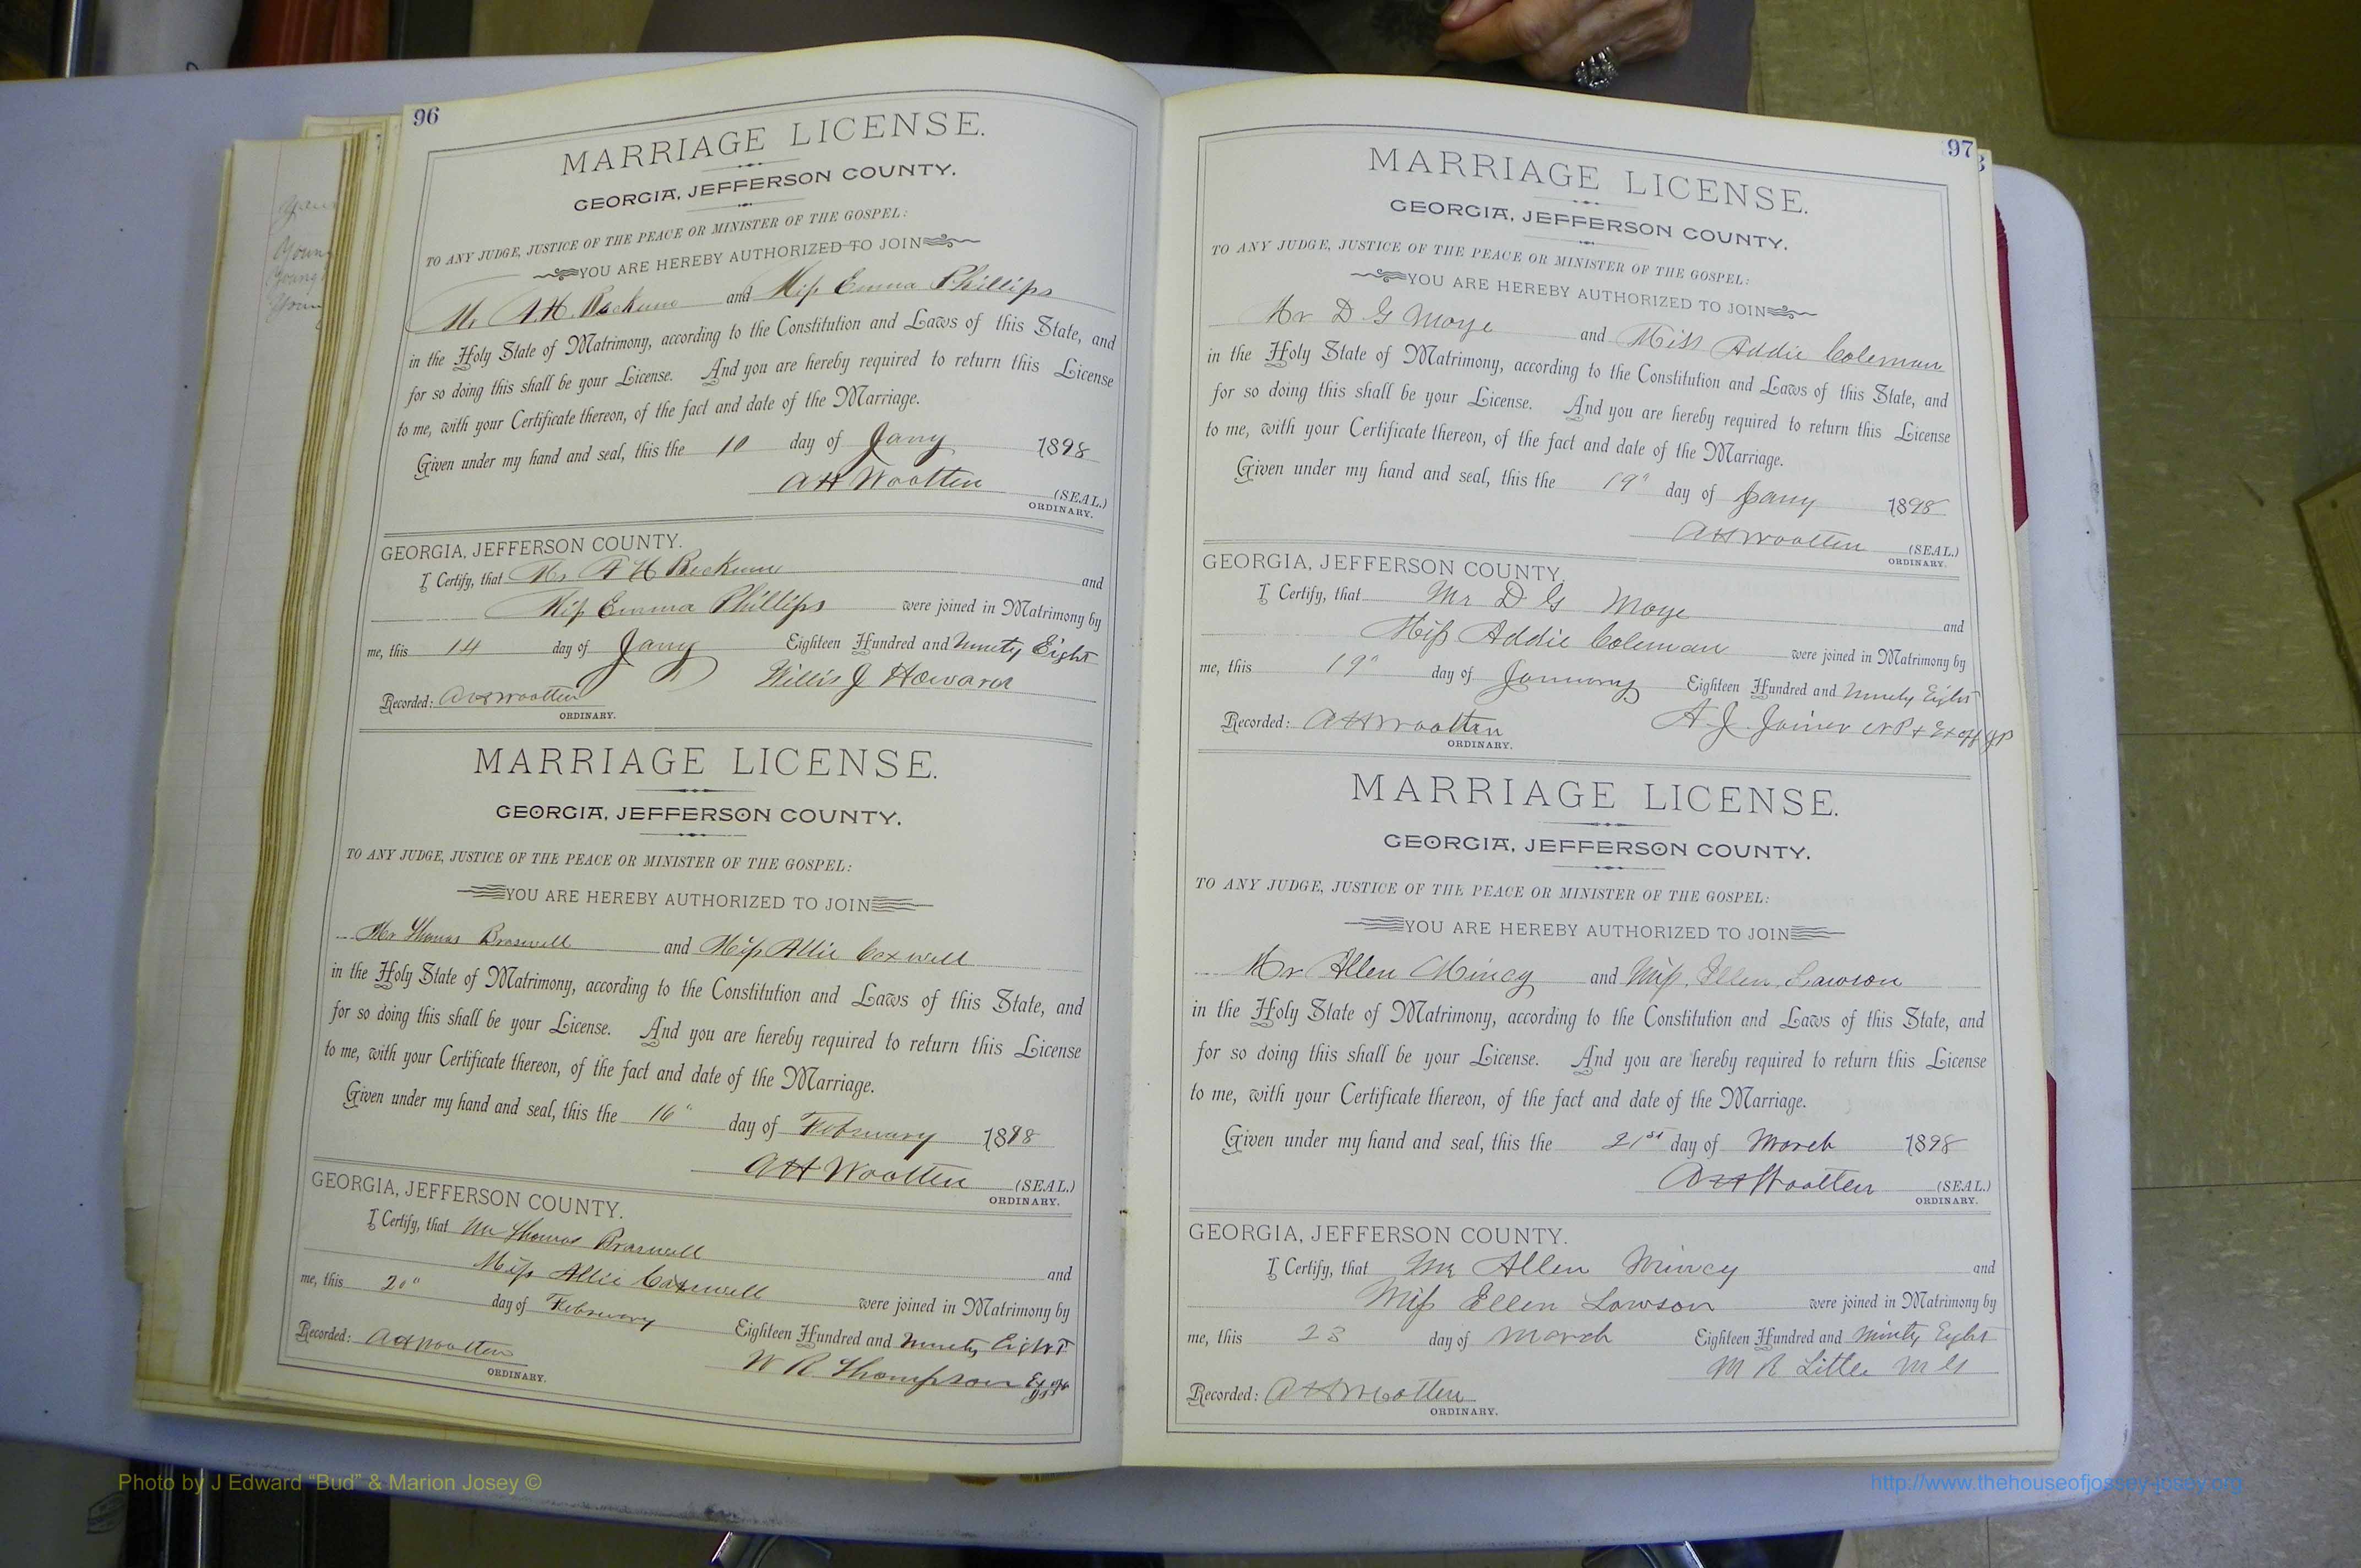 96
MARRIAGE LICENSE.
GEORGIA, JEFFERSON COUNTY.
TO ANY JUDGE, JUSTICE OF THE PEACE OR MINISTER OF THE GOSPEL:
YOU ARE HEREBY AUTHORIZED TO JOIN
Mr A.H. and Miss Emma Phillips
in the Holy State of Matrimony, according to the Constitution and Laws of this State, and
for so doing this shall be your License. And you are hereby required to return this License
to me, with your Certificate thereon, of the fact and date of the Marriage.
Given under my hand and seal, this the 10 day of Jany 1898
AH Wootten (SEAL.)
ORDINARY.
GEORGIA, JEFFERSON COUNTY.
I Certify, that Mr A H and
Miss Emma Phillips were joined in Matrimony by
me, this 14 day of Jany Eighteen Hundred and Ninety Eight
Willis J Howard
Recorded: AH Wootten
ORDINARY.
MARRIAGE LICENSE.
GEORGIA, JEFFERSON COUNTY.
TO ANY JUDGE, JUSTICE OF THE PEACE OR MINISTER OF THE GOSPEL:
YOU ARE HEREBY AUTHORIZED TO JOIN
Mr Thomas Braswell and Miss Allie Coxwell
in the Holy State of Matrimony, according to the Constitution and Laws of this State, and
for so doing this shall be your License. And you are hereby required to return this License
to me, with your Certificate thereon, of the fact and date of the Marriage.
Given under my hand and seal, this the 16" day of February 1898
AH Wootten (SEAL.)
ORDINARY.
GEORGIA, JEFFERSON COUNTY.
I Certify, that Mr Thomas Braswell and
Miss Allie Coxwell were joined in Matrimony by
me, this 20" day of February Eighteen Hundred and Ninety Eight
W R Thompson Ex off
Recorded: AH Wootten
ORDINARY.
97
MARRIAGE LICENSE.
GEORGIA, JEFFERSON COUNTY.
TO ANY JUDGE, JUSTICE OF THE PEACE OR MINISTER OF THE GOSPEL:
YOU ARE HEREBY AUTHORIZED TO JOIN
Mr D G Moye and Miss Addie Coleman
in the Holy State of Matrimony, according to the Constitution and Laws of this State, and
for so doing this shall be your License. And you are hereby required to return this License
to me, with your Certificate thereon, of the fact and date of the Marriage.
Given under my hand and seal, this the 19" day of Jany 1898
AH Wootten (SEAL.)
ORDINARY.
GEORGIA, JEFFERSON COUNTY.
I Certify, that Mr D G Moye and
Miss Addie Coleman were joined in Matrimony by
me, this 19" day of January Eighteen Hundred and Ninety Eight
A J Joiner NP & Ex off JP
Recorded: AH Wootten
ORDINARY.
MARRIAGE LICENSE.
GEORGIA, JEFFERSON COUNTY.
TO ANY JUDGE, JUSTICE OF THE PEACE OR MINISTER OF THE GOSPEL:
YOU ARE HEREBY AUTHORIZED TO JOIN
Mr Allen Mincy and Miss Ellen Lawson
in the Holy State of Matrimony, according to the Constitution and Laws of this State, and
for so doing this shall be your License. And you are hereby required to return this License
to me, with your Certificate thereon, of the fact and date of the Marriage.
Given under my hand and seal, this the 21st day of March 1898
AH Wootten (SEAL.)
ORDINARY.
GEORGIA, JEFFERSON COUNTY.
I Certify, that Mr Allen Mincy and
Miss Ellen Lawson were joined in Matrimony by
me, this 23 day of March Eighteen Hundred and Ninety Eight
M R Little M G
Recorded: AH Wootten
ORDINARY.
Photo by J Edward “Bud” & Marion Josey ©
http://www.thehouseofjossey-josey.org